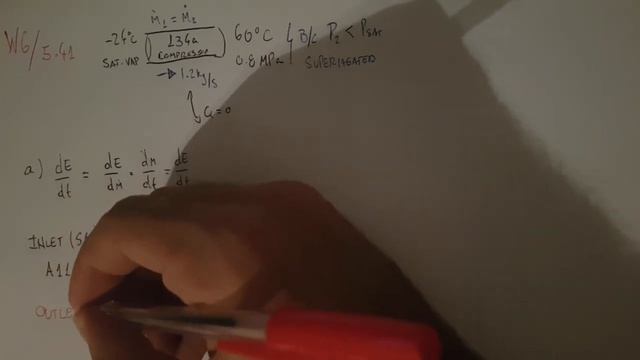 W6/5.41
ṁ₁ = ṁ₂
-24°C
SAT. VAP
134a
COMPRESSOR
→ 1.2 kg/s
60°C
0.8 MPa
B/c P₂ < Psat
SUPERHEATED
Q = 0
a) dE/dt = dE/dm · dm/dt = dE/dt
INLET
A11
OUTLE